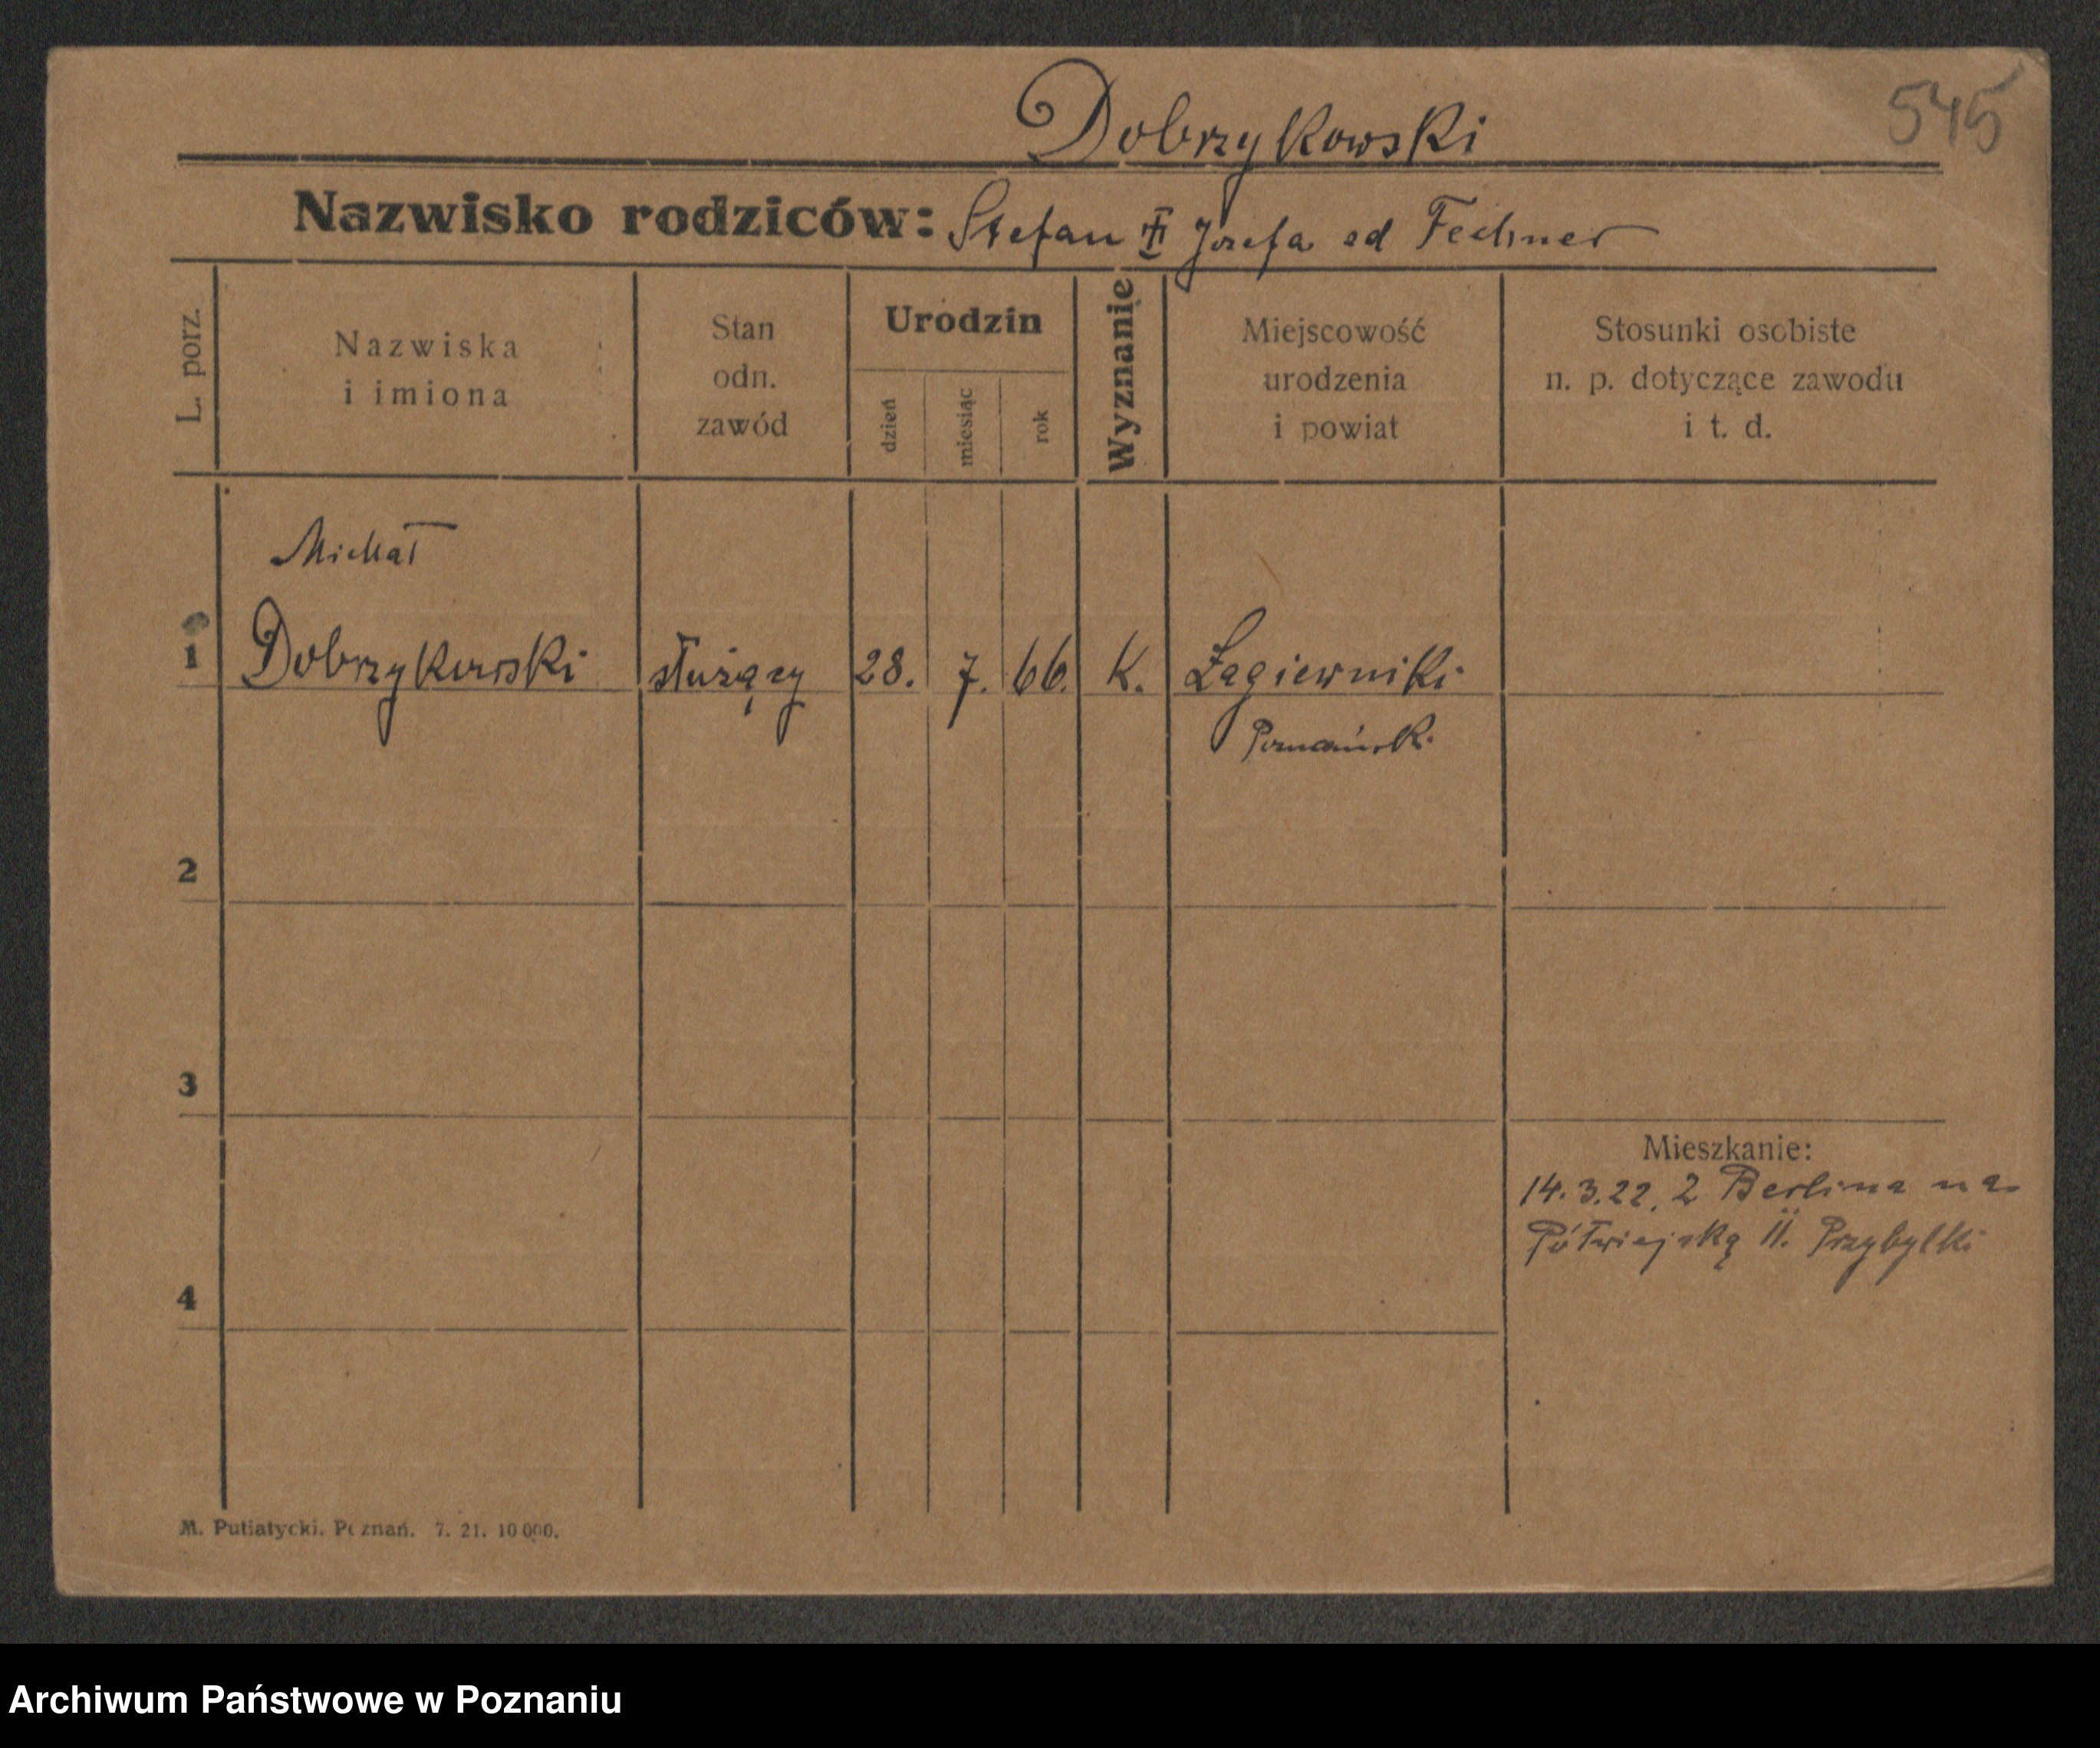 545
Dobrzykowski
Nazwisko rodziców: Stefan Józefa od Fechner
L. porz.
Nazwiska
i imiona
Stan
odn.
zawód
Urodzin
dzień
miesiąc
rok
Wyznanie
Miejscowość
urodzenia
i powiat
Stosunki osobiste
n. p. dotyczące zawodu
i t. d.
Michał
1 Dobrzykowski służący 28. 7. 66. K. Łagiewniki
Poznańsk.
2
3
Mieszkanie:
14.3.22. z Berlina na
Półwiejską 11. Przybylki
4
M. Putiatycki. Poznań. 7. 21. 10 000.
Archiwum Państwowe w Poznaniu